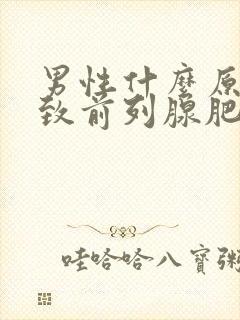 男性什麼原
致前列腺肥
哇哈哈八寶粥